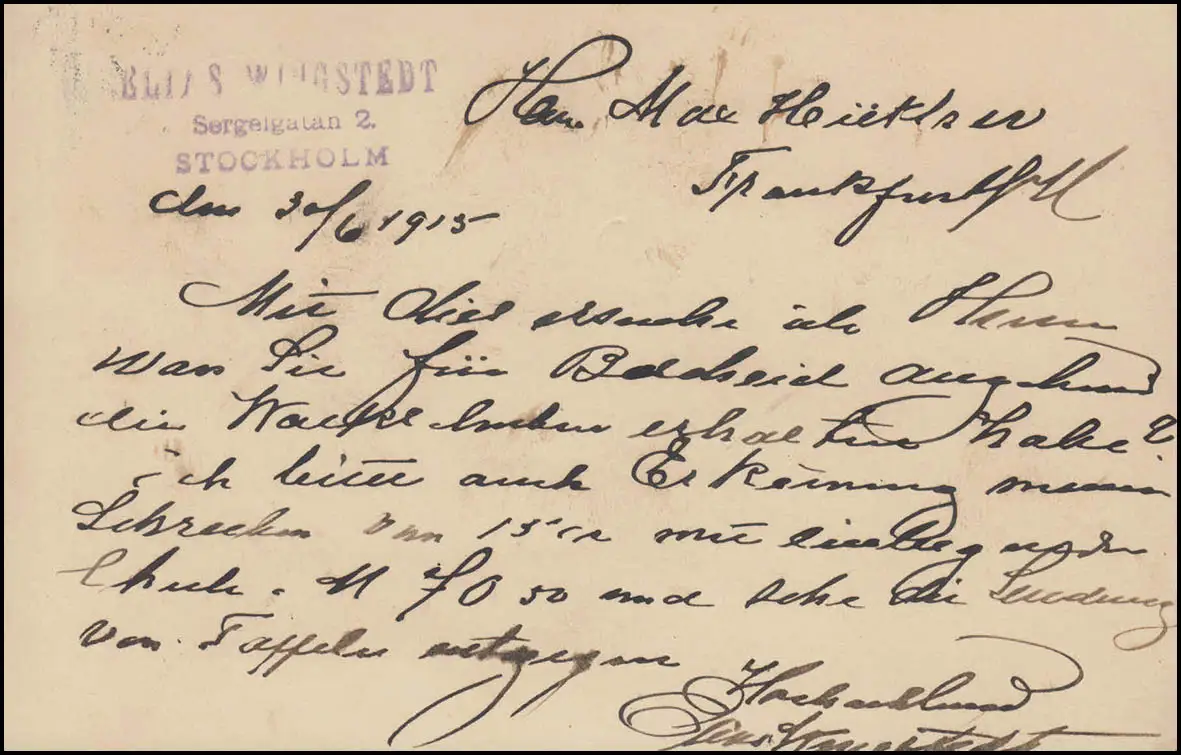 ELIAS WINGSTEDT
Sergelgatan 2.
STOCKHOLM
Herrn Max
Frankfurt /M
den 30/6 1915
Mit dies ersuche ich Herrn
was Sie für Bescheid
die erhalten habe?
ich bitte auch Erkennung meinen
Schreiben von 15 mit
Check. M 70 50 und sehe die Sendung
von Taffeln entgegen
Hochachtend
Elias Wingstedt